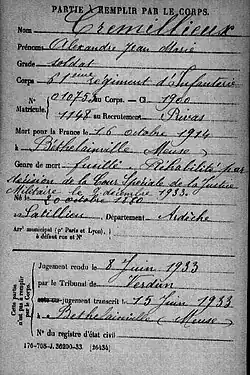 PARTIE À REMPLIR PAR LE CORPS.
Nom Cremillieux
Prénoms Alexandre Jean Marie
Grade soldat
Corps 61ème Régiment d'Infanterie
N° 01075 au Corps. — Cl. 1900
Matricule. 1148 au Recrutement Privas
Mort pour la France le 16 octobre 1914
à Bethelainville Meuse
Genre de mort fusillé Réhabilité par
décision de la Cour Spéciale de la Justice
Militaire le 2 décembre 1933
Né le 20 octobre 1880
à Satillieu Département Ardèche
Arrt municipal (pr Paris et Lyon),
à défaut rue et N°
Cette partie n'est pas à remplir par le Corps.
Jugement rendu le 8 Juin 1933
par le Tribunal de Verdun
jugement transcrit le 15 Juin 1933
à Bethelainville (Meuse)
N° du registre d'état civil
176-708-J. 36290-33. [26434]